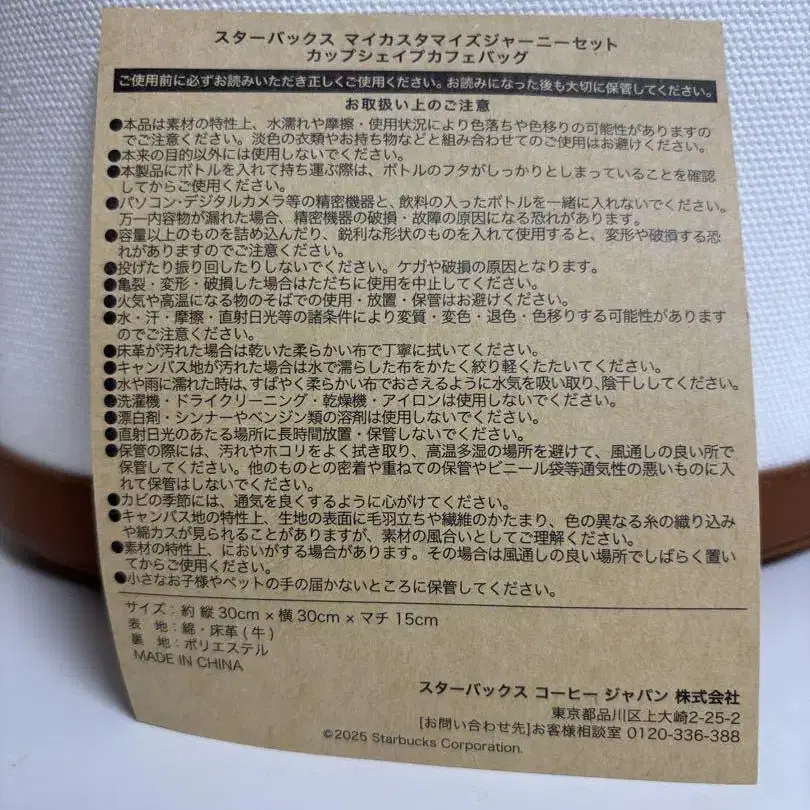 スターバックス マイカスタマイズジャーニーセット
カップシェイプカフェバッグ
ご使用前に必ずお読みいただき正しくご使用ください。お読みになった後も大切に保管してください。
お取扱い上のご注意
●本品は素材の特性上、水濡れや摩擦・使用状況により色落ちや色移りの可能性がありますの
でご注意ください。淡色の衣類やお持ち物などと組み合わせてのご使用はお避けください。
●本来の目的以外には使用しないでください。
●本製品にボトルを入れて持ち運ぶ際は、ボトルのフタがしっかりとしまっていることを確認
してからご使用ください。
●パソコン・デジタルカメラ等の精密機器と、飲料の入ったボトルを一緒に入れないでください。
万一内容物が漏れた場合、精密機器の破損・故障の原因になる恐れがあります。
●容量以上のものを詰め込んだり、鋭利な形状のものを入れて使用すると、変形や破損する恐
れがありますのでご注意ください。
●投げたり振り回したりしないでください。ケガや破損の原因となります。
●亀裂・変形・破損した場合はただちに使用を中止してください。
●火気や高温になる物のそばでの使用・放置・保管はお避けください。
●水・汗・摩擦・直射日光等の諸条件により変質・変色・退色・色移りする可能性があります
のでご注意ください。
●床革が汚れた場合は乾いた柔らかい布で丁寧に拭いてください。
●キャンバス地が汚れた場合は水で濡らした布をかたく絞り軽くたたいてください。
●水や雨に濡れた時は、すばやく柔らかい布でおさえるように水気を吸い取り、陰干ししてください。
●洗濯機・ドライクリーニング・乾燥機・アイロンは使用しないでください。
●漂白剤・シンナーやベンジン類の溶剤は使用しないでください。
●直射日光のあたる場所に長時間放置・保管しないでください。
●保管の際には、汚れやホコリをよく拭き取り、高温多湿の場所を避けて、風通しの良い所で
保管してください。他のものとの密着や重ねての保管やビニール袋等通気性の悪いものに入
れて保管はしないでください。
●カビの季節には、通気を良くするように心がけてください。
●キャンバス地の特性上、生地の表面に毛羽立ちや繊維のかたまり、色の異なる糸の織り込み
や綿カスが見られることがありますが、素材の風合いとしてご理解ください。
●素材の特性上、においがする場合があります。その場合は風通しの良い場所でしばらく置い
てからご使用ください。
●小さなお子様やペットの手の届かないところに保管してください。
サイズ：約 縦30cm × 横30cm × マチ 15cm
表 地：綿・床革(牛)
裏 地：ポリエステル
MADE IN CHINA
スターバックス コーヒー ジャパン 株式会社
東京都品川区上大崎2-25-2
[お問い合わせ先]お客様相談室 0120-336-388
©2025 Starbucks Corporation.